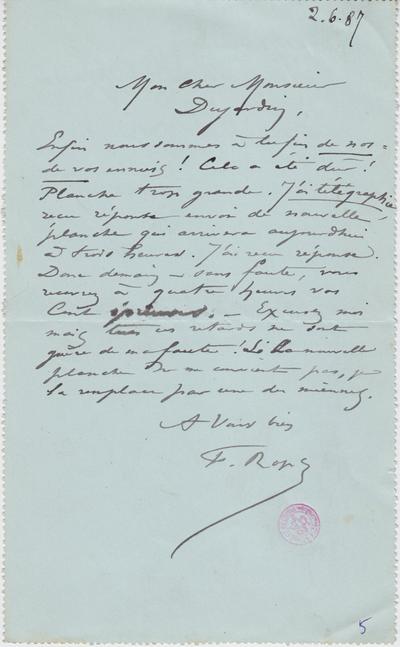 2.6.87
Mon Cher Monsieur
Dujardin,
Enfin nous sommes à la fin de nos =
de vos ennuis ! Cela a été dur !
Planche trop grande. J'ai télégraphié
reçu réponse envoi de nouvelle
planche qui arrivera aujourdhui
à trois heures. J'ai reçu réponse.
Donc demain – sans faute, vous
recevrez à quatre heures vos
Cent épreuves. – Excusez moi
mais tous ces retards ne sont
guère de ma faute ! Si la nouvelle
planche ne me convient pas, je
la remplace par une des miennes.
A Vous bien
F. Rops
5